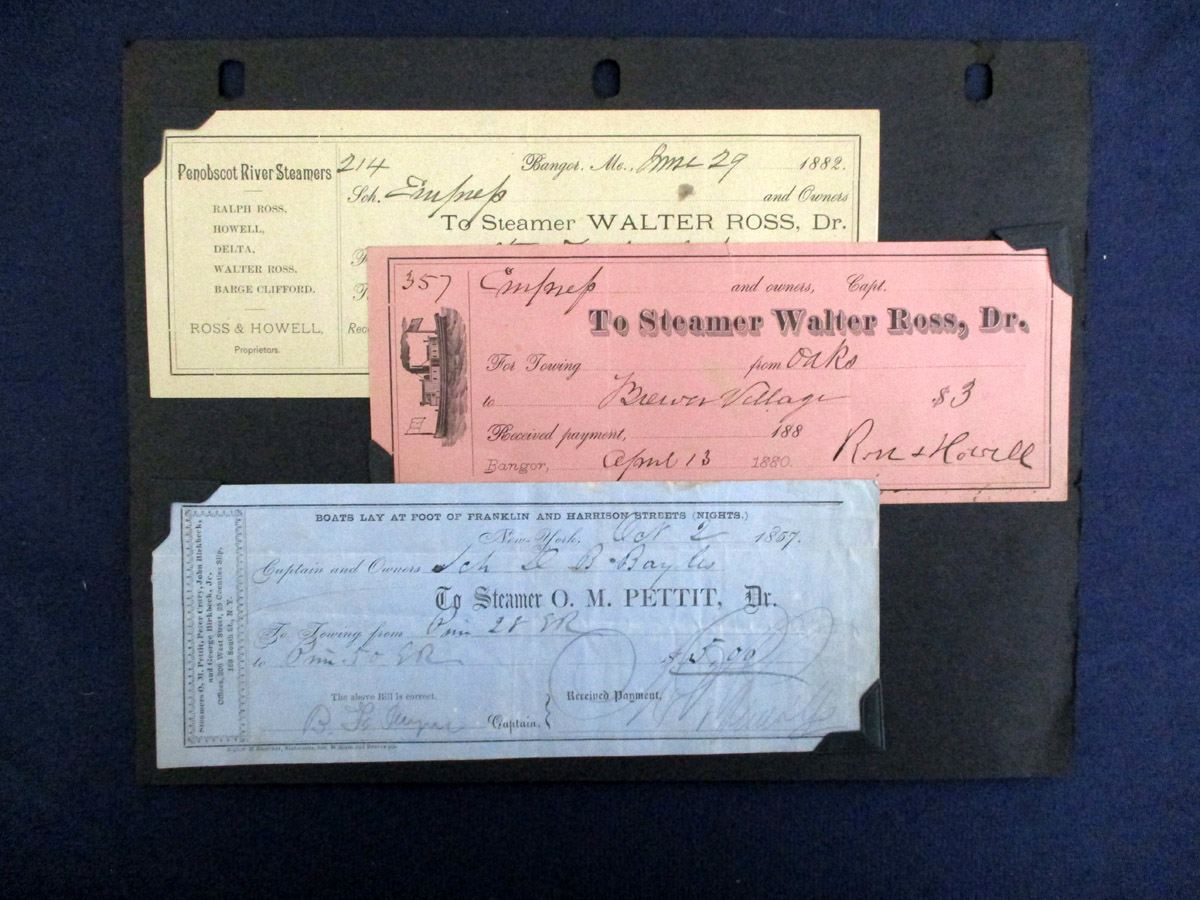 Penobscot River Steamers
RALPH ROSS,
HOWELL,
DELTA,
WALTER ROSS.
BARGE CLIFFORD.
ROSS & HOWELL,
Proprietors.
214 Bangor, Me., June 29 1882.
Sch. Empress and Owners
To Steamer WALTER ROSS, Dr.
357 Empress and owners, Capt.
To Steamer Walter Ross, Dr.
For Towing from Oaks
to Brewer Village $3
Received payment, 188
Bangor, April 13 1880. Ross & Howell
Steamers O. M. Pettit, Peter Crary, John Birkbeck,
and George Birkbeck, Jr.
Offices, 206 West Street, 35 Coenties Slip,
168 South St., N. Y.
BOATS LAY AT FOOT OF FRANKLIN AND HARRISON STREETS (NIGHTS.)
New-York. Oct 2 1857.
Captain and Owners Sch B Bayles
To Steamer O. M. PETTIT, Dr.
To Towing from Pier 28 ER
to Pier 50 ER $5,00
The above Bill is correct, Received Payment,
Captain,